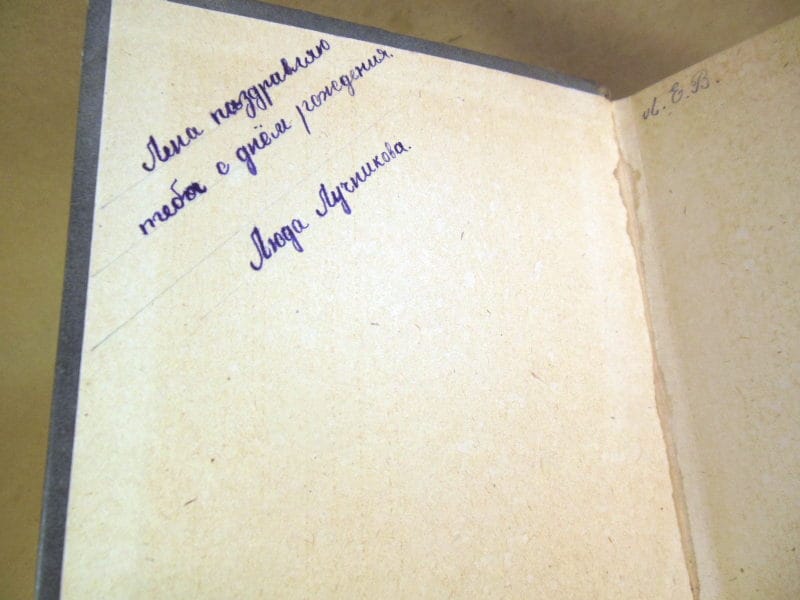 Лена паздравляю
тебя с днём рождения.
Люда Лучникова.
Л. Е. В.